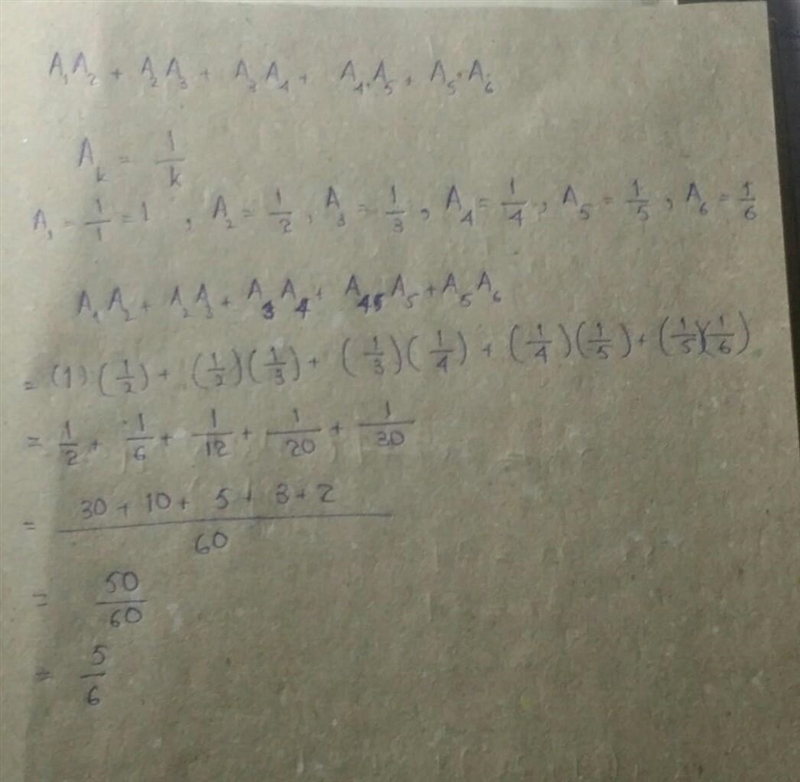 A₁A₂ + A₂A₃ + A₃A₄ + A₄.A₅ + A₅.A₆
A_k = 1/k
A₁ = 1/1 = 1 , A₂ = 1/2 , A₃ = 1/3 , A₄ = 1/4 , A₅ = 1/5 , A₆ = 1/6
A₁A₂ + A₂A₃ + A₃A₄ + A₄₅A₅ + A₅A₆
= (1)(1/2) + (1/2)(1/3) + (1/3)(1/4) + (1/4)(1/5) + (1/5)(1/6)
= 1/2 + 1/6 + 1/12 + 1/20 + 1/30
= (30 + 10 + 5 + 3 + 2)/60
= 50/60
= 5/6